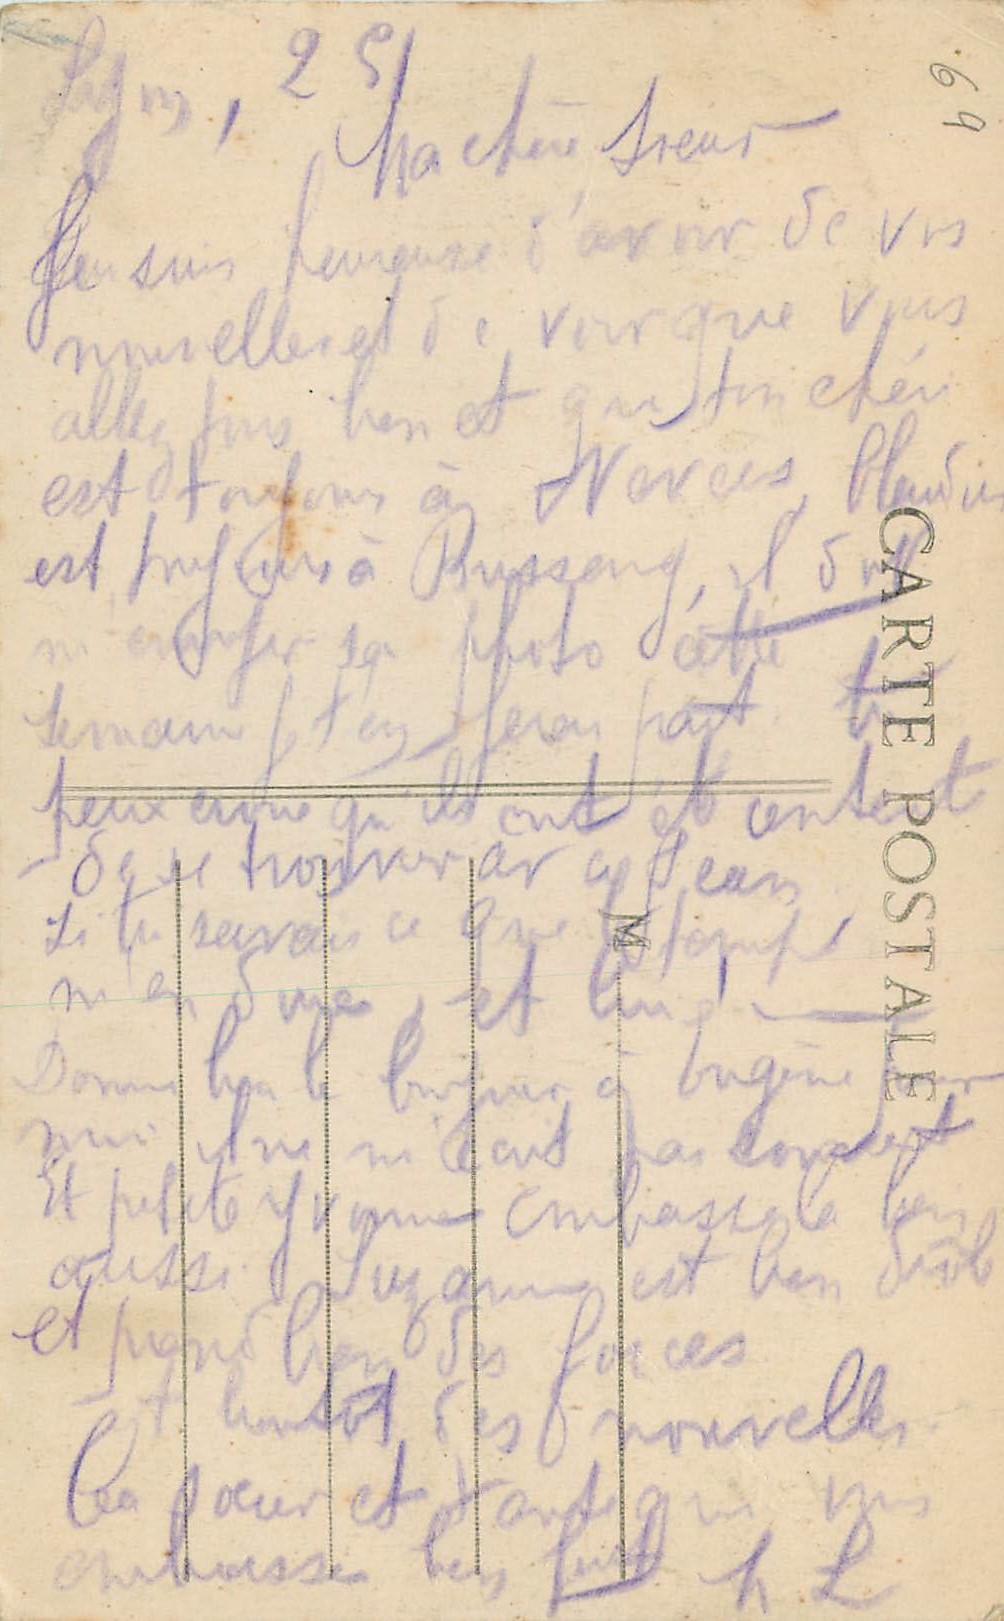 Lyon, 25
69
Ma chère Soeur
Je suis heureuse d'avoir de vos
nouvelles et de voir que vous
allez tous bien et que ton chéri
est toujours à
est toujours à Bussang, il doit
m'envoyer sa photo cette
semaine je t'en ferai part. tu
peux croire qu'ils ont été content
de se trouver avec Jean
si tu savais ce que le temps
m'en dure, et
Donne bien le bonjour à Eugène pour
moi il ne m'écrit pas souvent
Et petite Yvonne embrasse la bien
aussi. Suzanne est bien drôle
et prend bien des forces
bientôt des nouvelles.
Ta soeur et tante qui vous
embrasse bien fort M L
CARTE POSTALE
M